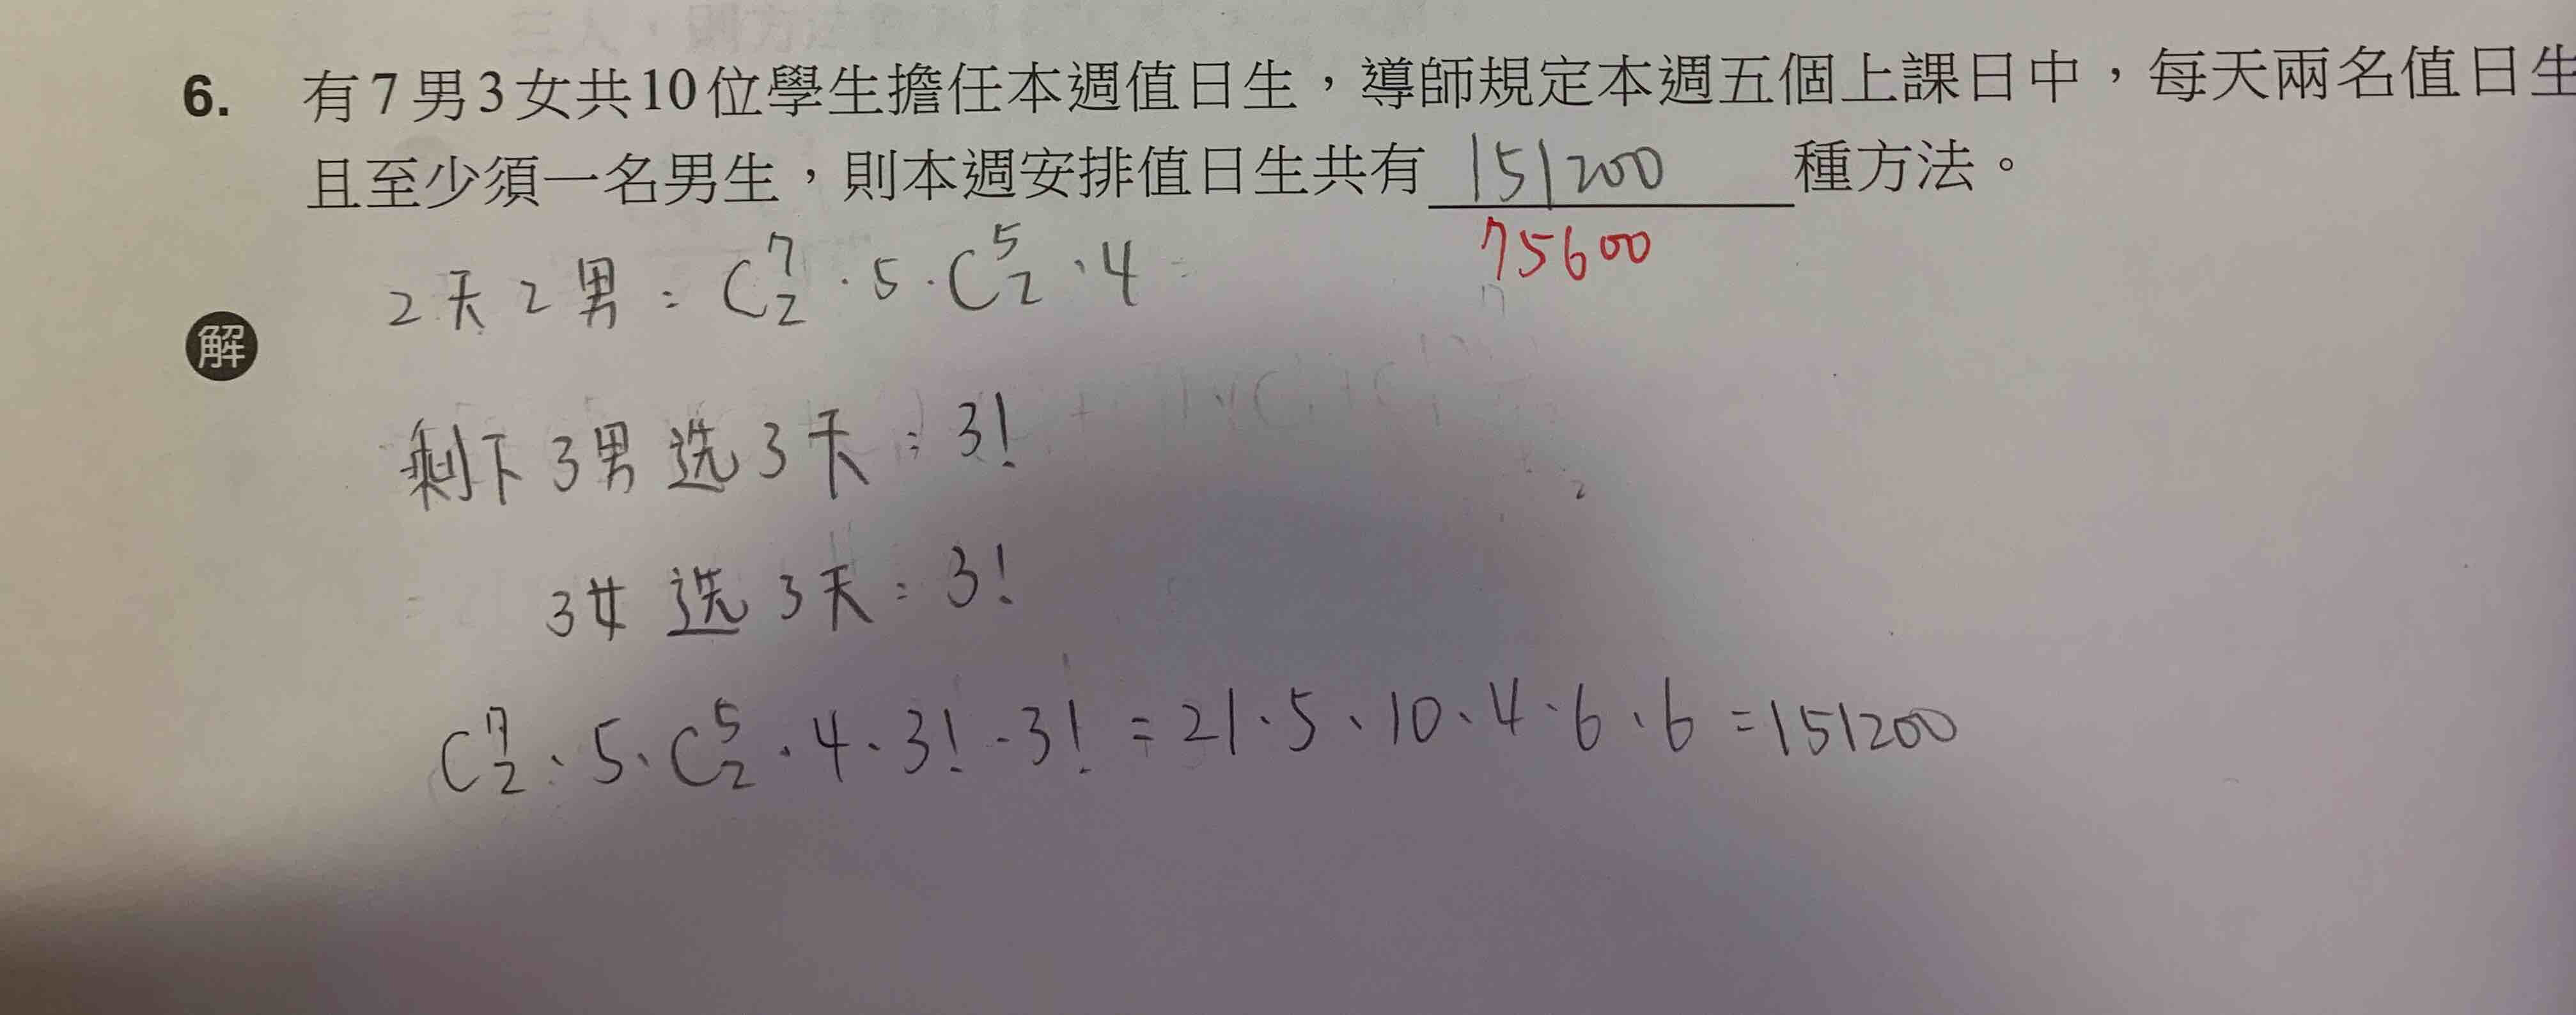 6. 有7男3女共10位學生擔任本週值日生，導師規定本週五個上課日中，每天兩名值日生
且至少須一名男生，則本週安排值日生共有 151200 種方法。
75600
2天2男：C⁷₂·5·C⁵₂·4
解
剩下3男选3天：3!
3女选3天：3!
C⁷₂·5·C⁵₂·4·3!·3! = 21·5·10·4·6·6 = 151200